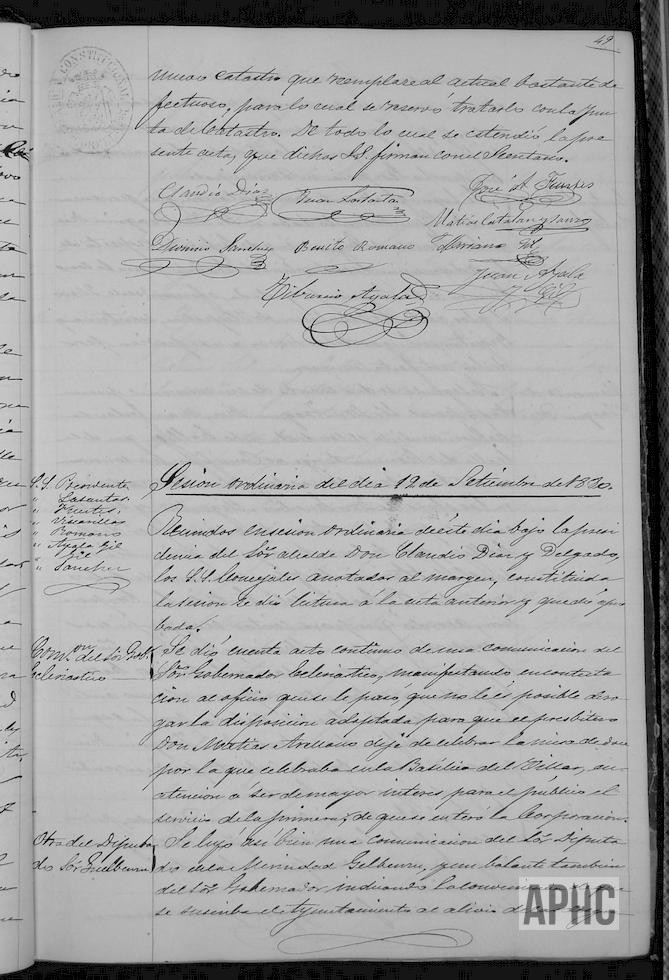 49
nuevo Catastro que remplaze al actual bastante de
fectuoso, para lo cual se reservó tratarlo con la Jun
ta de Catastro. De todo lo cual se estendió la pre
sente acta, que dichos S.S. firman con el Secretario.
Claudio Díaz
Juan Lasanta
José A. Fuertes
Matias Catalan y Sanz
Dionisio Sanchez
Benito Romano
Juan Ayala
Tiburcio Ayala
S.S. Presidente
" Lasanta
" Fuertes
" Romano
" Ayala Gil
" Gil
" Sanchez
Sesion ordinaria del dia 12 de Setiembre de 1880.
Reunidos en sesion ordinaria de éste dia bajo la presi
dencia del Sór alcalde Don Claudio Diaz y Delgado,
los S.S. Concejales anotados al margen, constituida
la sesion se dió lectura á la acta anterior y quedó apro
bada.
Com.on del Sór Gob.r
Eclesiastico
Se dió cuenta acto continuo de una comunicacion del
Sór Gobernador Eclesiastico, manifestando en contesta
cion al oficio que se le pasó, que no le es posible dero
gar la disposicion adoptada para que el presbitero
Don Matías Arellano deje de celebrar la misa de doce
por la que celebraba en la Basilica del Villar, en
atencion á ser de mayor interes para el público el
servicio de la primera; de que se enteró la Corporacion.
Otra del Diputa
do Sór Guelbenzu
Se leyó asi bien una comunicacion del Sór Diputa
do de la Merindad Guelbenzu, y un balante tambien
del Sór Gobernador indicando la conveniencia
se suscriba el Ayuntamiento al alivio de
APHC